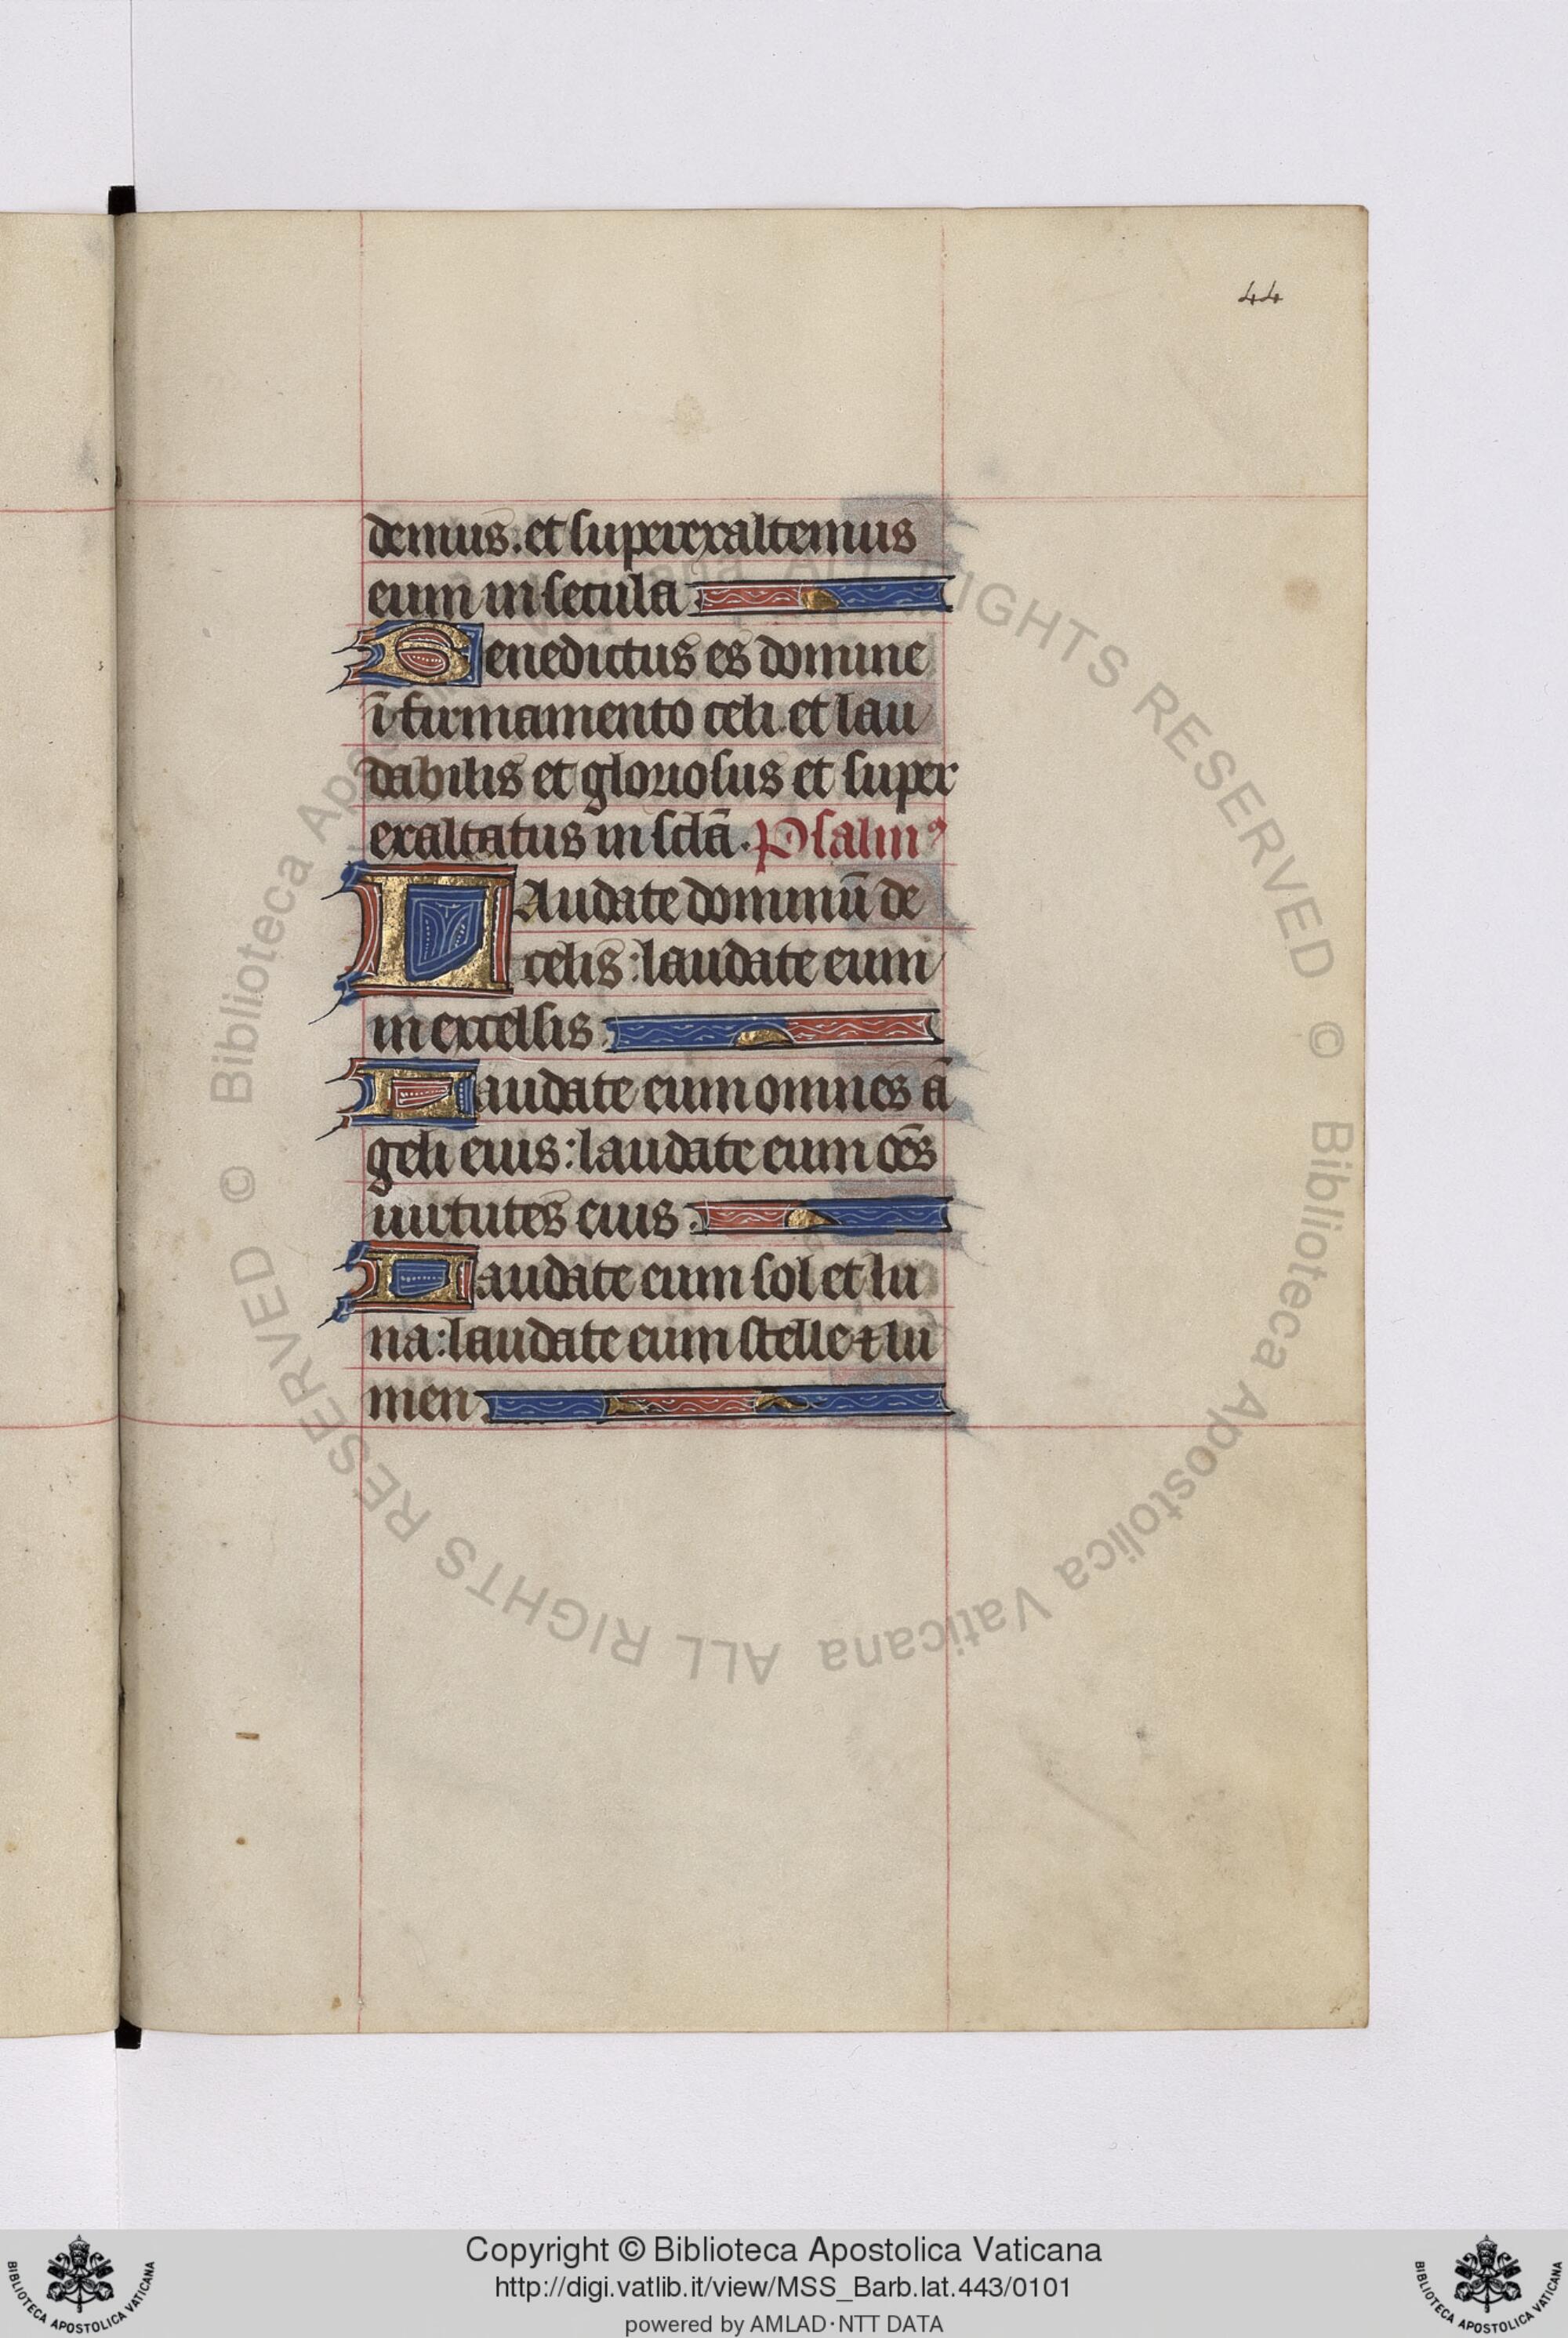 44
demus. et superexaltemus
eum in secula.
Benedictus es domine
ī firmamento celi. et lau
dabilis et gloriosus et super
exaltatus in sclā. Psalmꝰ
LAudate dominū de
celis: laudate eum
in excelsis.
Laudate eum omnes ā
geli eius: laudate eum oēs
uirtutes eius.
Laudate eum sol et lu
na: laudate eum stelle ⁊ lu
men.
© Biblioteca Apostolica Vaticana ALL RIGHTS RESERVED
© Biblioteca Apostolica Vaticana ALL RIGHTS RESERVED
Copyright © Biblioteca Apostolica Vaticana
http://digi.vatlib.it/view/MSS_Barb.lat.443/0101
powered by AMLAD·NTT DATA
BIBLIOTECA APOSTOLICA VATICANA
BIBLIOTECA APOSTOLICA VATICANA